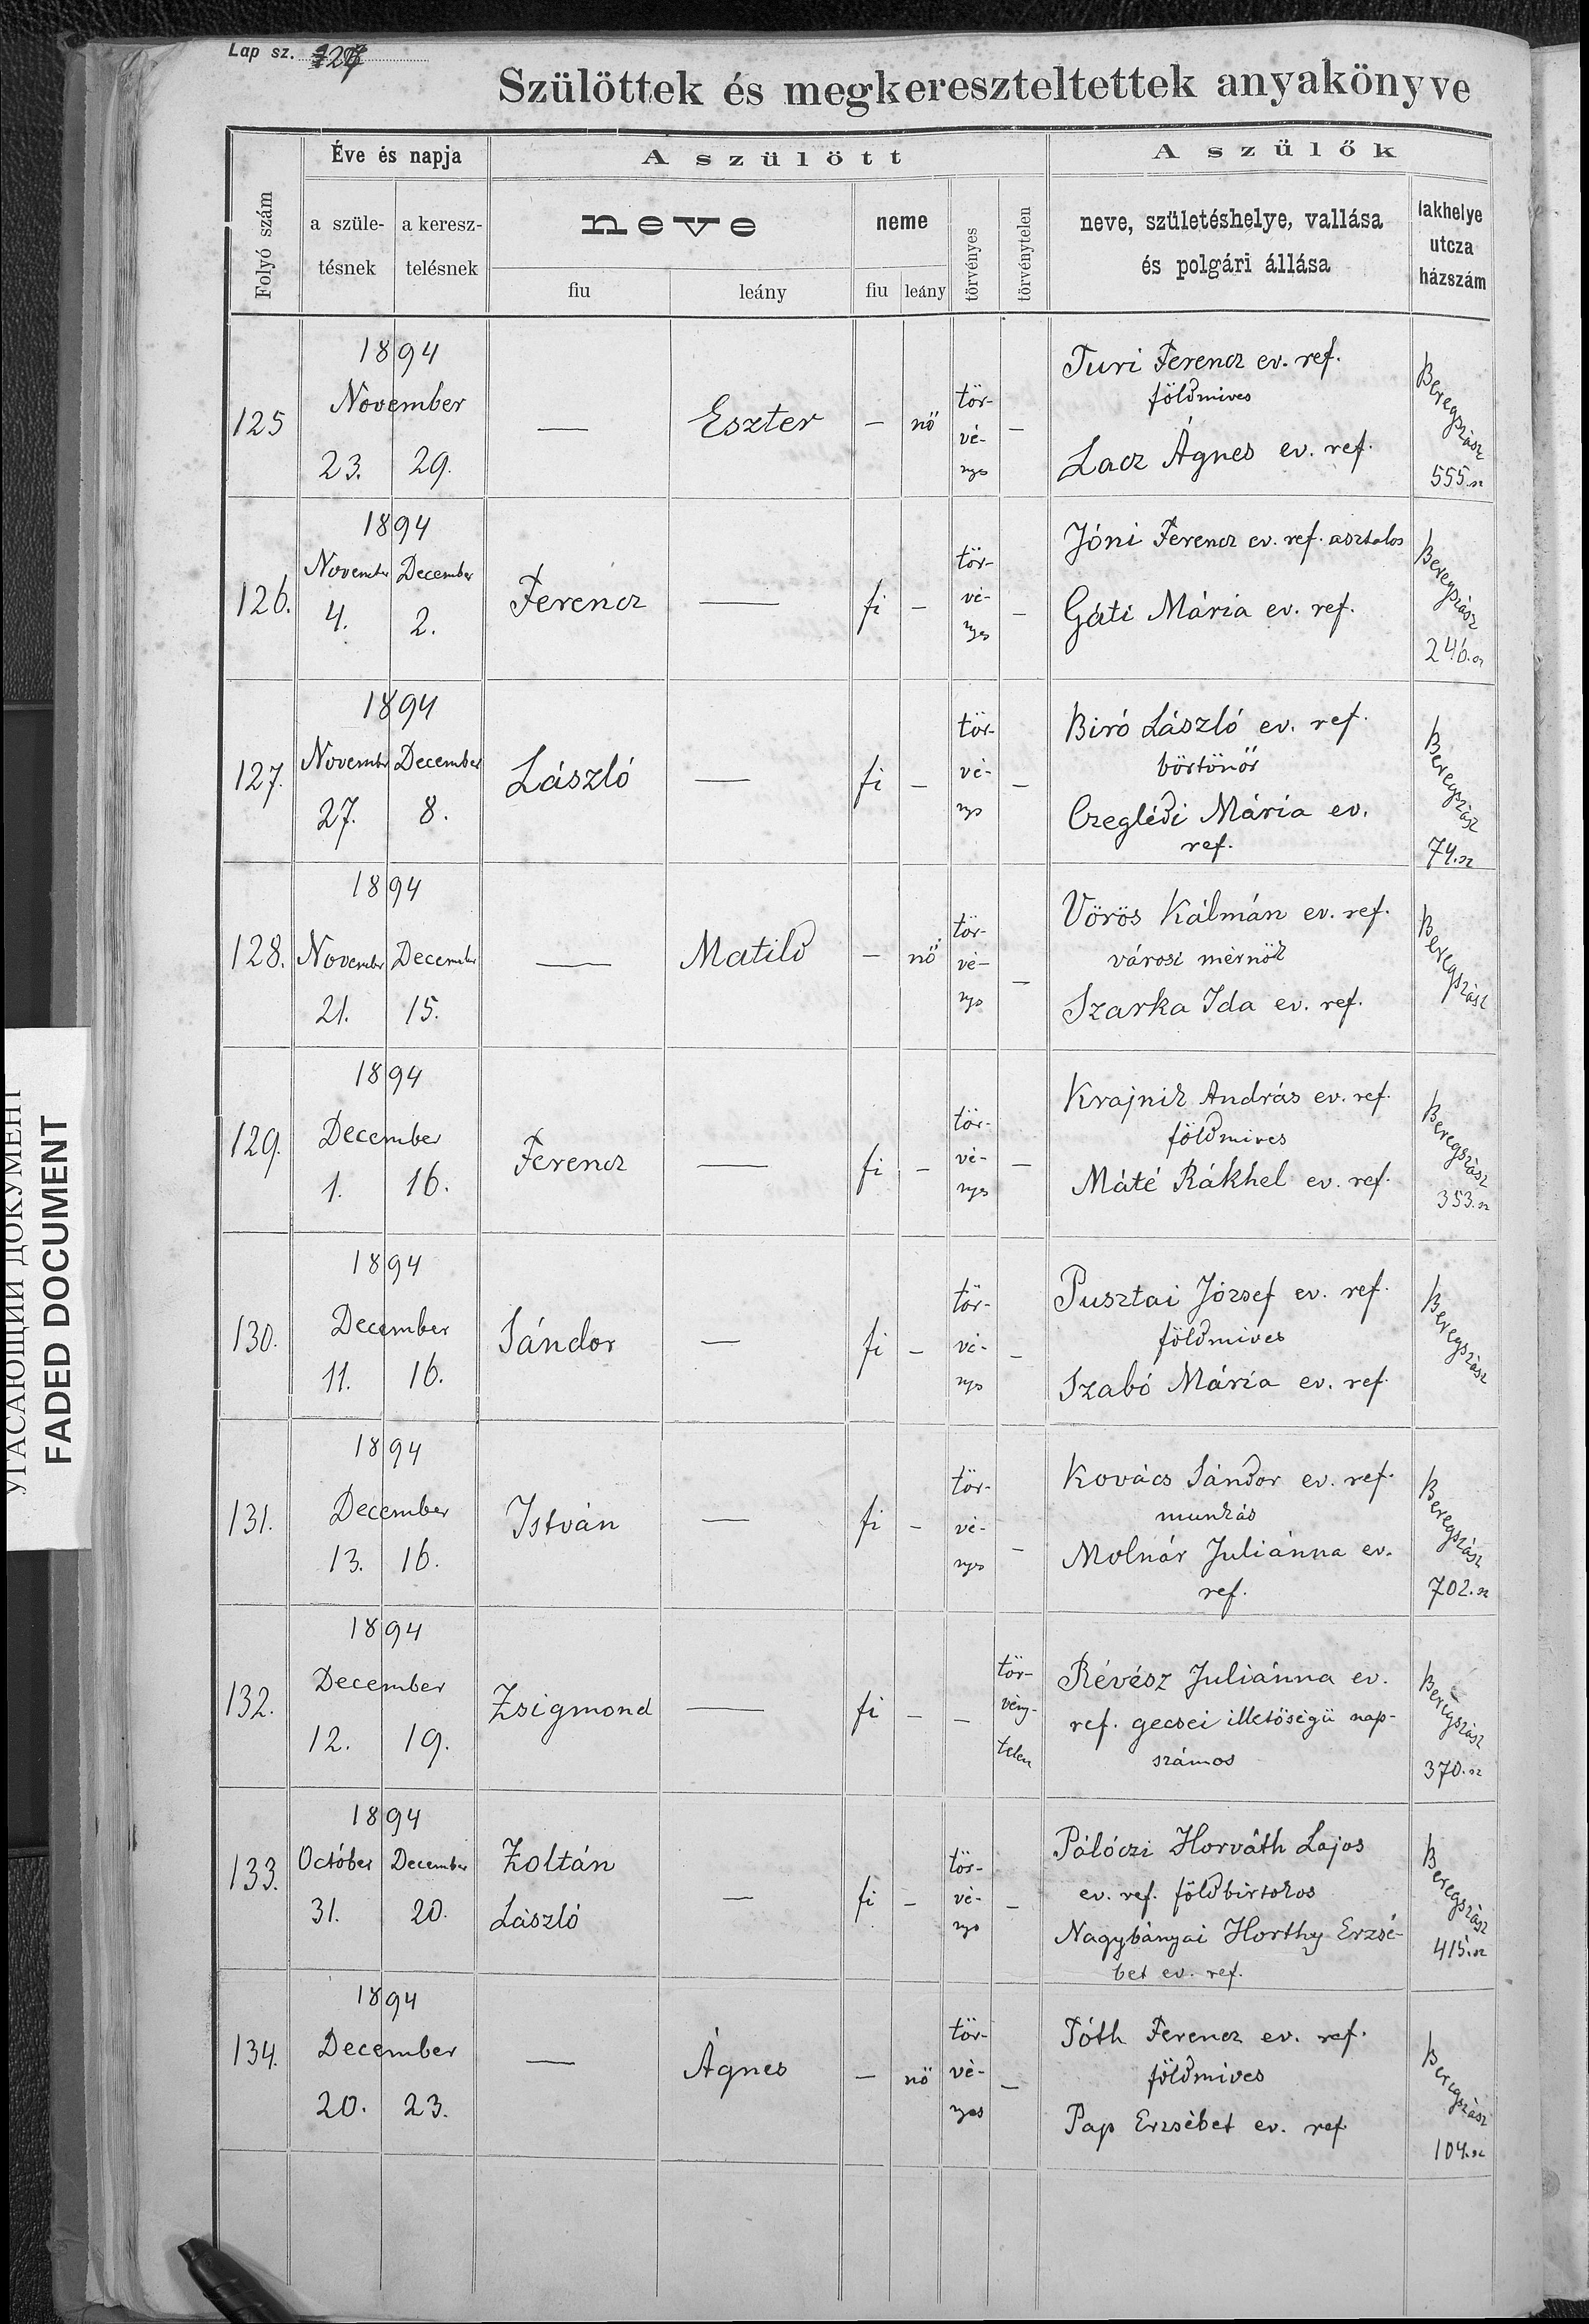 Lap sz.
Szülöttek és megkereszteltettek anyakönyve
Folyó szám
Éve és napja
a szüle-
tésnek
a keresz-
telésnek
A szülött
neve
fiu
leány
neme
fiu
leány
törvényes
törvénytelen
A szülők
neve, születéshelye, vallása
és polgári állása
lakhelye
utcza
házszám
125
1894
November
23. 29.
—
Eszter
—
nő
tör-
vé-
nyes
—
Turi Ferencz ev. ref.
földmives
Lacz Ágnes ev. ref.
Beregszász
555. sz
126.
1894
November December
4. 2.
Ferencz
—
fi
—
tör-
vé-
nyes
—
Jóni Ferencz ev. ref. asztalos
Gáti Mária ev. ref.
Beregszász
246. sz
127.
1894
November December
27. 8.
László
—
fi
—
tör-
vé-
nyes
—
Biró László ev. ref.
börtönőr
Czeglédi Mária ev.
ref.
Beregszász
74. sz
128.
1894
November December
21. 15.
—
Matild
—
nő
tör-
vé-
nyes
—
Vörös Kálmán ev. ref.
városi mérnök
Szarka Ida ev. ref.
Beregszász
129.
1894
December
1. 16.
Ferencz
—
fi
—
tör-
vé-
nyes
—
Krajnik András ev. ref.
földmives
Máté Rákhel ev. ref.
Beregszász
353. sz
130.
1894
December
11. 16.
Sándor
—
fi
—
tör-
vé-
nyes
—
Pusztai József ev. ref.
földmives
Szabó Mária ev. ref.
Beregszász
131.
1894
December
13. 16.
István
—
fi
—
tör-
vé-
nyes
—
Kovács Sándor ev. ref.
munkás
Molnár Juliánna ev.
ref.
Beregszász
702. sz
132.
1894
December
12. 19.
Zsigmond
—
fi
—
—
tör-
vény-
telen
Révész Juliánna ev.
ref. gecsei illetőségü nap-
számos
Beregszász
370. sz
133.
1894
Octóber December
31. 20.
Zoltán
László
—
fi
—
tör-
vé-
nyes
—
Pálóczi Horváth Lajos
ev. ref. földbirtokos
Nagybányai Horthy Erzsé-
bet ev. ref.
Beregszász
415. sz
134.
1894
December
20. 23.
—
Ágnes
—
nő
tör-
vé-
nyes
—
Tóth Ferencz ev. ref.
földmives
Pap Erzsébet ev. ref
Beregszász
104. sz
УГАСАЮЩИЙ ДОКУМЕНТ
FADED DOCUMENT